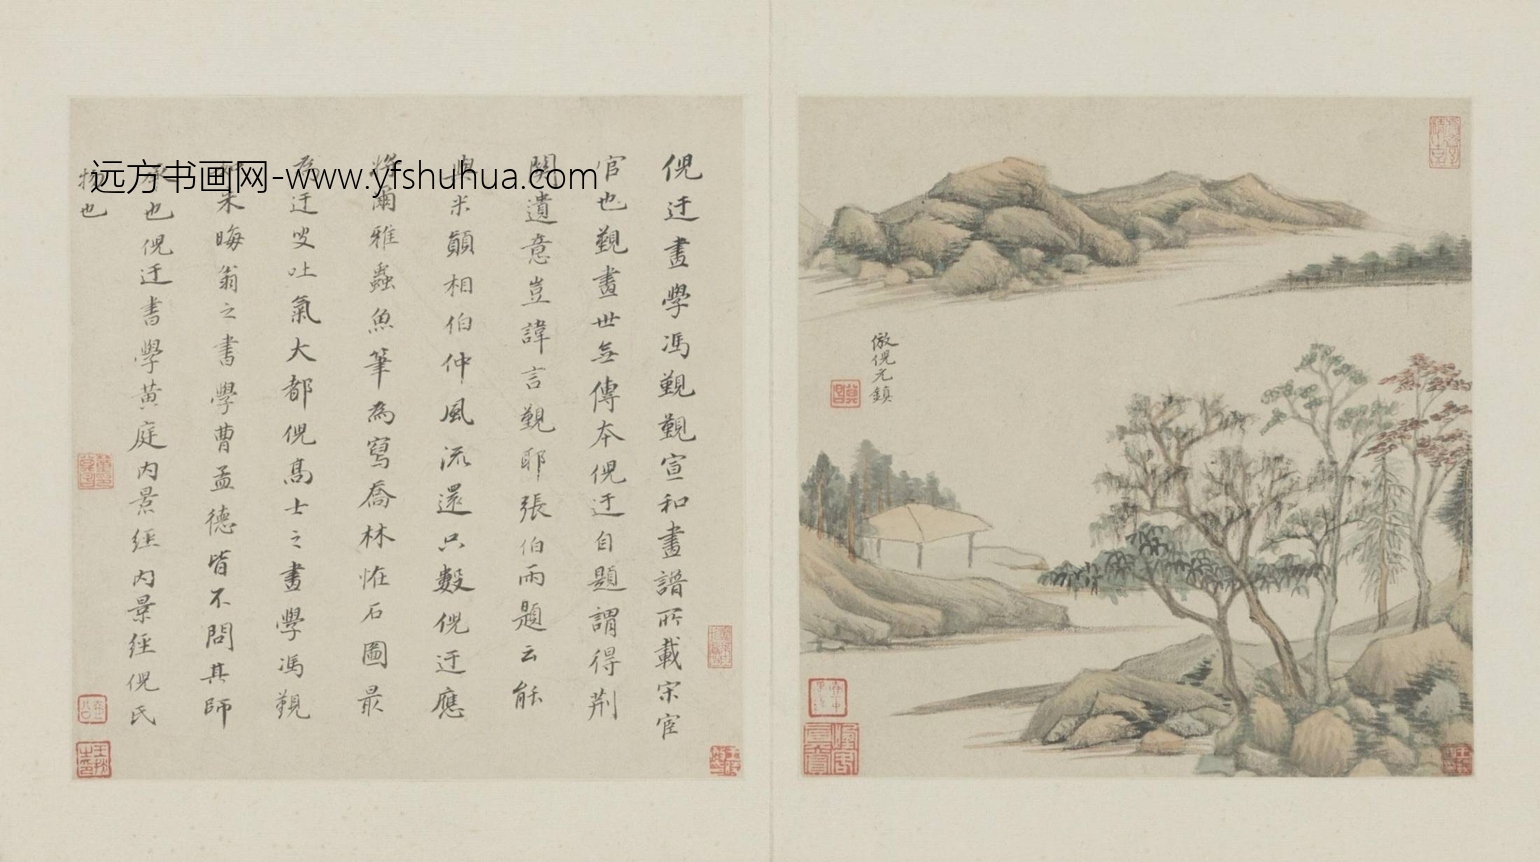 远方书画网-www.yfshuhua.com
倣倪元鎮
倪迂畫學馮覲覲宣和畫譜所載宋宦
官也覲畫世無傳本倪迂自題謂得荆
關遺意豈諱言覲耶張伯雨題云解
與米顛相伯仲風流還只數倪迂應
將爾雅蟲魚筆為寫喬林恠石圖最
為迂叟吐氣大都倪高士之畫學馮覲
如朱晦翁之書學曹孟德皆不問其師
承也倪迂書學黄庭内景經内景經倪氏
物也